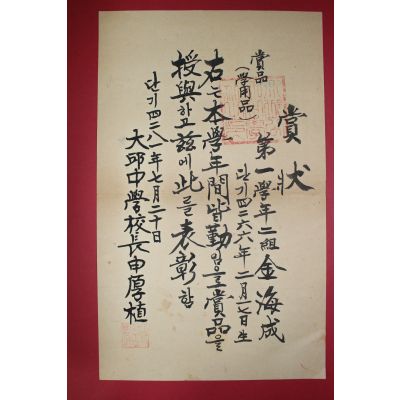 賞狀
第一學年二組 金海成
단기四二六六年二月一七日生
賞品
(學用品)
右는本學年間皆勤임으로賞品을
授與하고玆에此를表彰함
단기四二八一年七月二十日
大邱中學校長申厚植